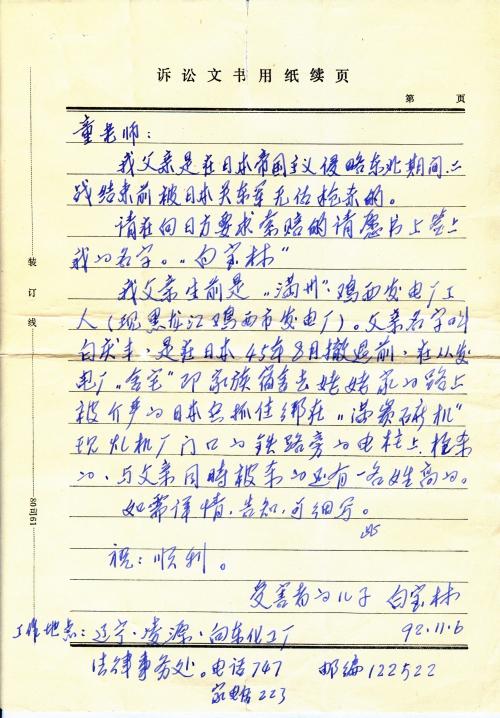 诉讼文书用纸续页
第 页
童老师：
我父亲是在日本帝国主义侵略东北期间、二
战结束前被日本关东军无故枪杀的。
请在向日方要求索赔的请愿书上签上
我的名字。"白宝林"
我父亲生前是"满州"鸡西发电厂工
人（现黑龙江鸡西市发电厂）。父亲名字叫
白 是在日本45年8月撤退前，在从发
电厂"舍宅"即家族宿舍去姥姥家的路上
被 的日本兵抓住绑在"满炭 机"
现 机厂门口的铁路旁的电柱上，枪杀
的、与父亲同時被杀的还有一名姓高的。
如需详情，告知，可细写。
此
祝：顺利。
受害者的儿子 白宝林
工作地点：辽宁·凌源·向东化工厂 92.11.6
法律事务处。电话747 邮编122522
家电话223
装订线
80司61